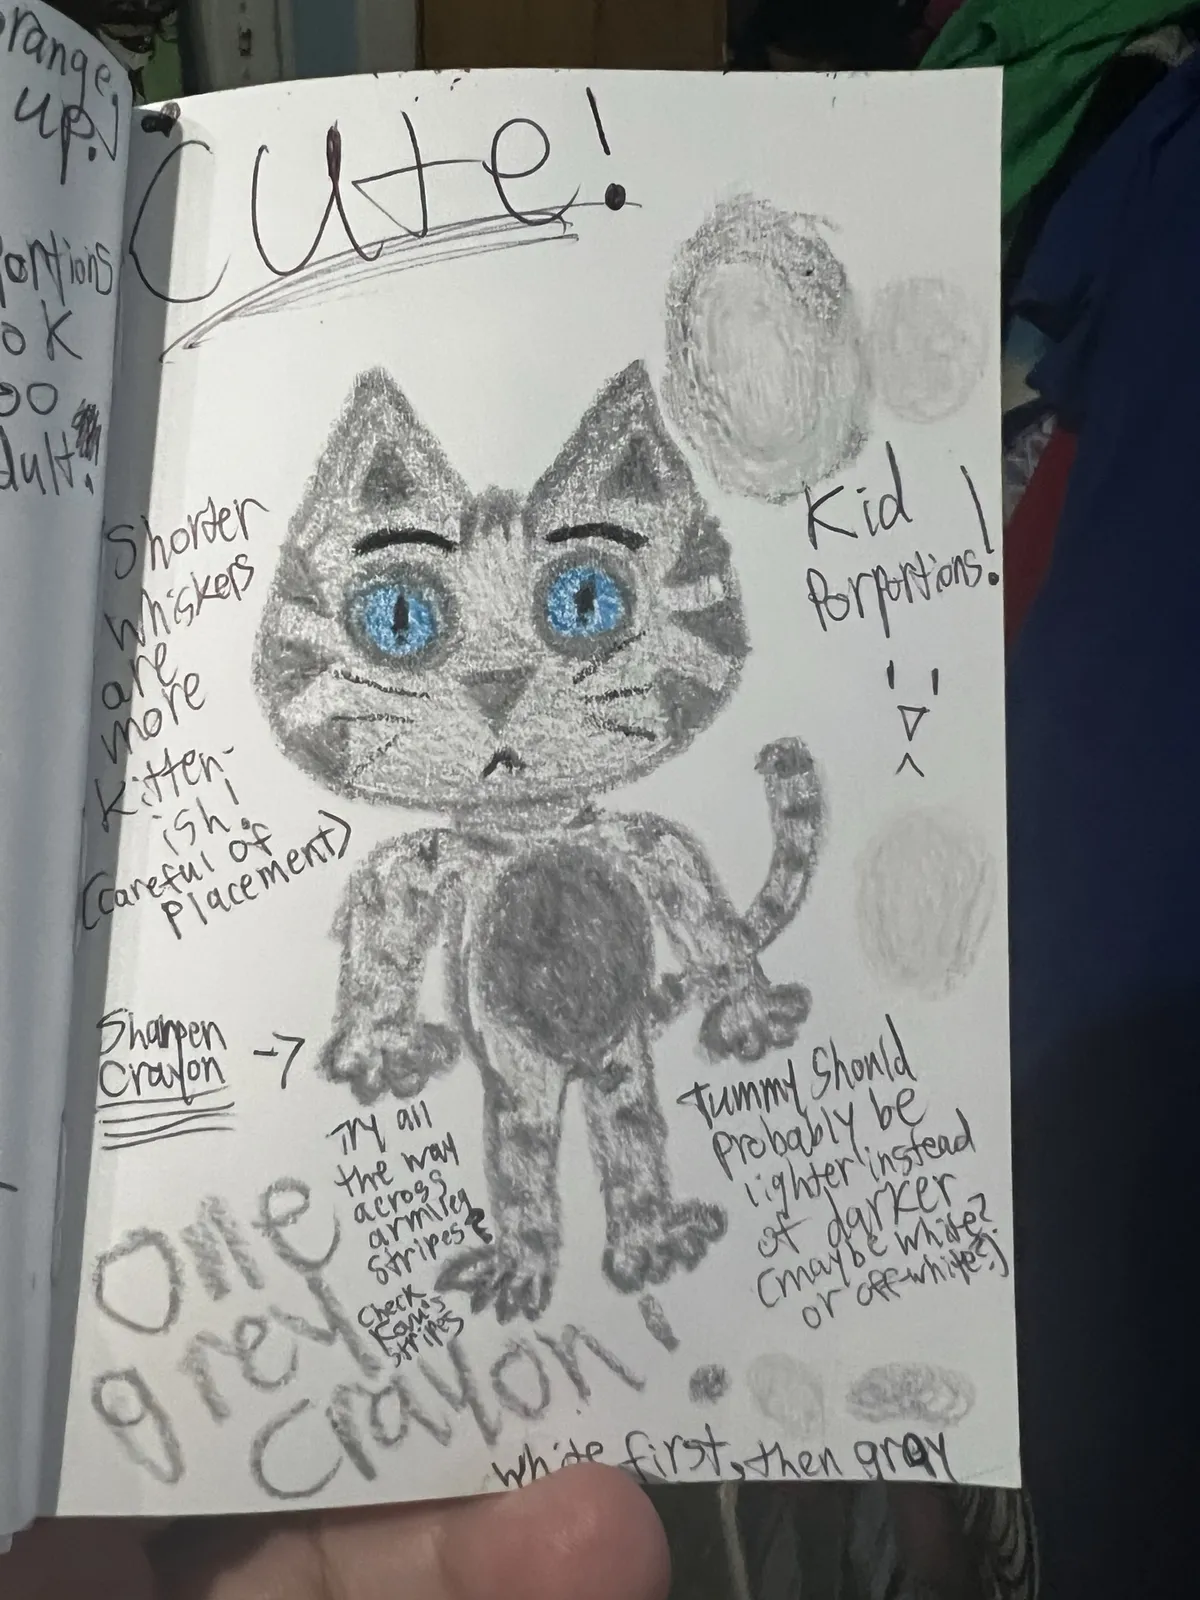 orange
up!
Cute!
portions
ok
oo
dult!
Shorter
whiskers
are
more
Kitten-
ish!
(careful of
placement)
Kid
Porportions!
Sharpen
Crayon
Try all
the way
across
arm/leg
stripes?
Check
stripes
Tummy should
probably be
lighter instead
of darker
(maybe white?
or off-white?)
One
grey
Crayon!
white first, then gray